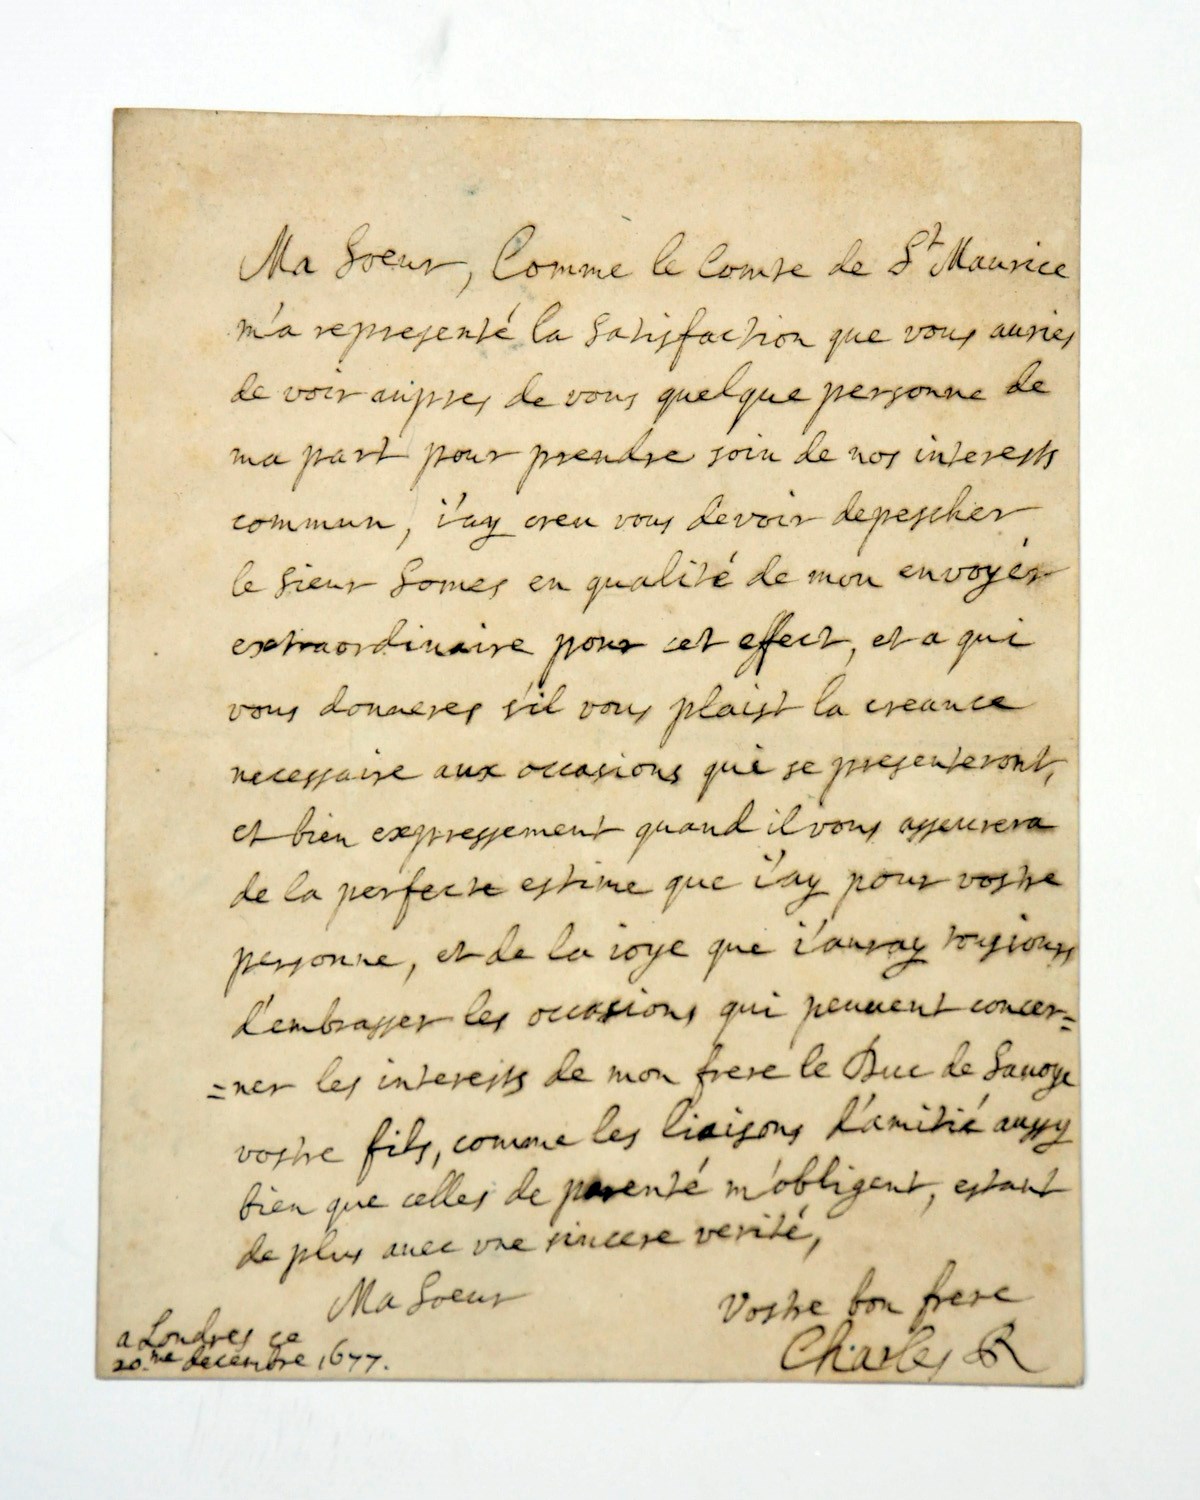 Ma Soeur, Comme le Comte de St Maurice
m'a representé la satisfaction que vous auries
de voir aupres de vous quelque personne de
ma part pour prendre soin de nos interests
commun, i'ay creu vous devoir depescher
le Sieur Somes en qualité de mon envoyér
extraordinaire pour cet effect, et a qui
vous donneres s'il vous plaist la creance
necessaire aux occasions qui se presenteront,
et bien expressement quand il vous asseurera
de la perfecte estime que i'ay pour vostre
personne, et de la ioye que i'auray tousjours
d'embrasser les occasions qui peuuent concer=
=ner les interests de mon frere le Duc de Sauoye
vostre fils, comme les liaisons d'amitié aussy
bien que celles de parenté m'obligent, estant
de plus auec vne sincere verité,
Ma Soeur
Vostre bon frere
Charles R
a Londres ce
20.me decembre 1677.